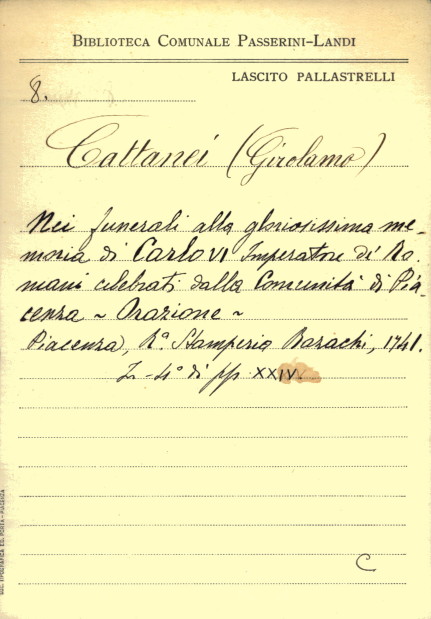 BIBLIOTECA COMUNALE PASSERINI-LANDI
LASCITO PALLASTRELLI
8.
Cattanei (Girolamo)
Nei funerali alla gloriosissima me-
moria di Carlo VI Imperatore de' Ro-
mani celebrati dalla Comunità di Pia-
cenza ~ Orazione ~
Piacenza, Rª. Stamperia Bazachi, 1741.
In-4º di pp XXIV.
C
SOC. TIPOGRAFICA ED. PORTA - PIACENZA